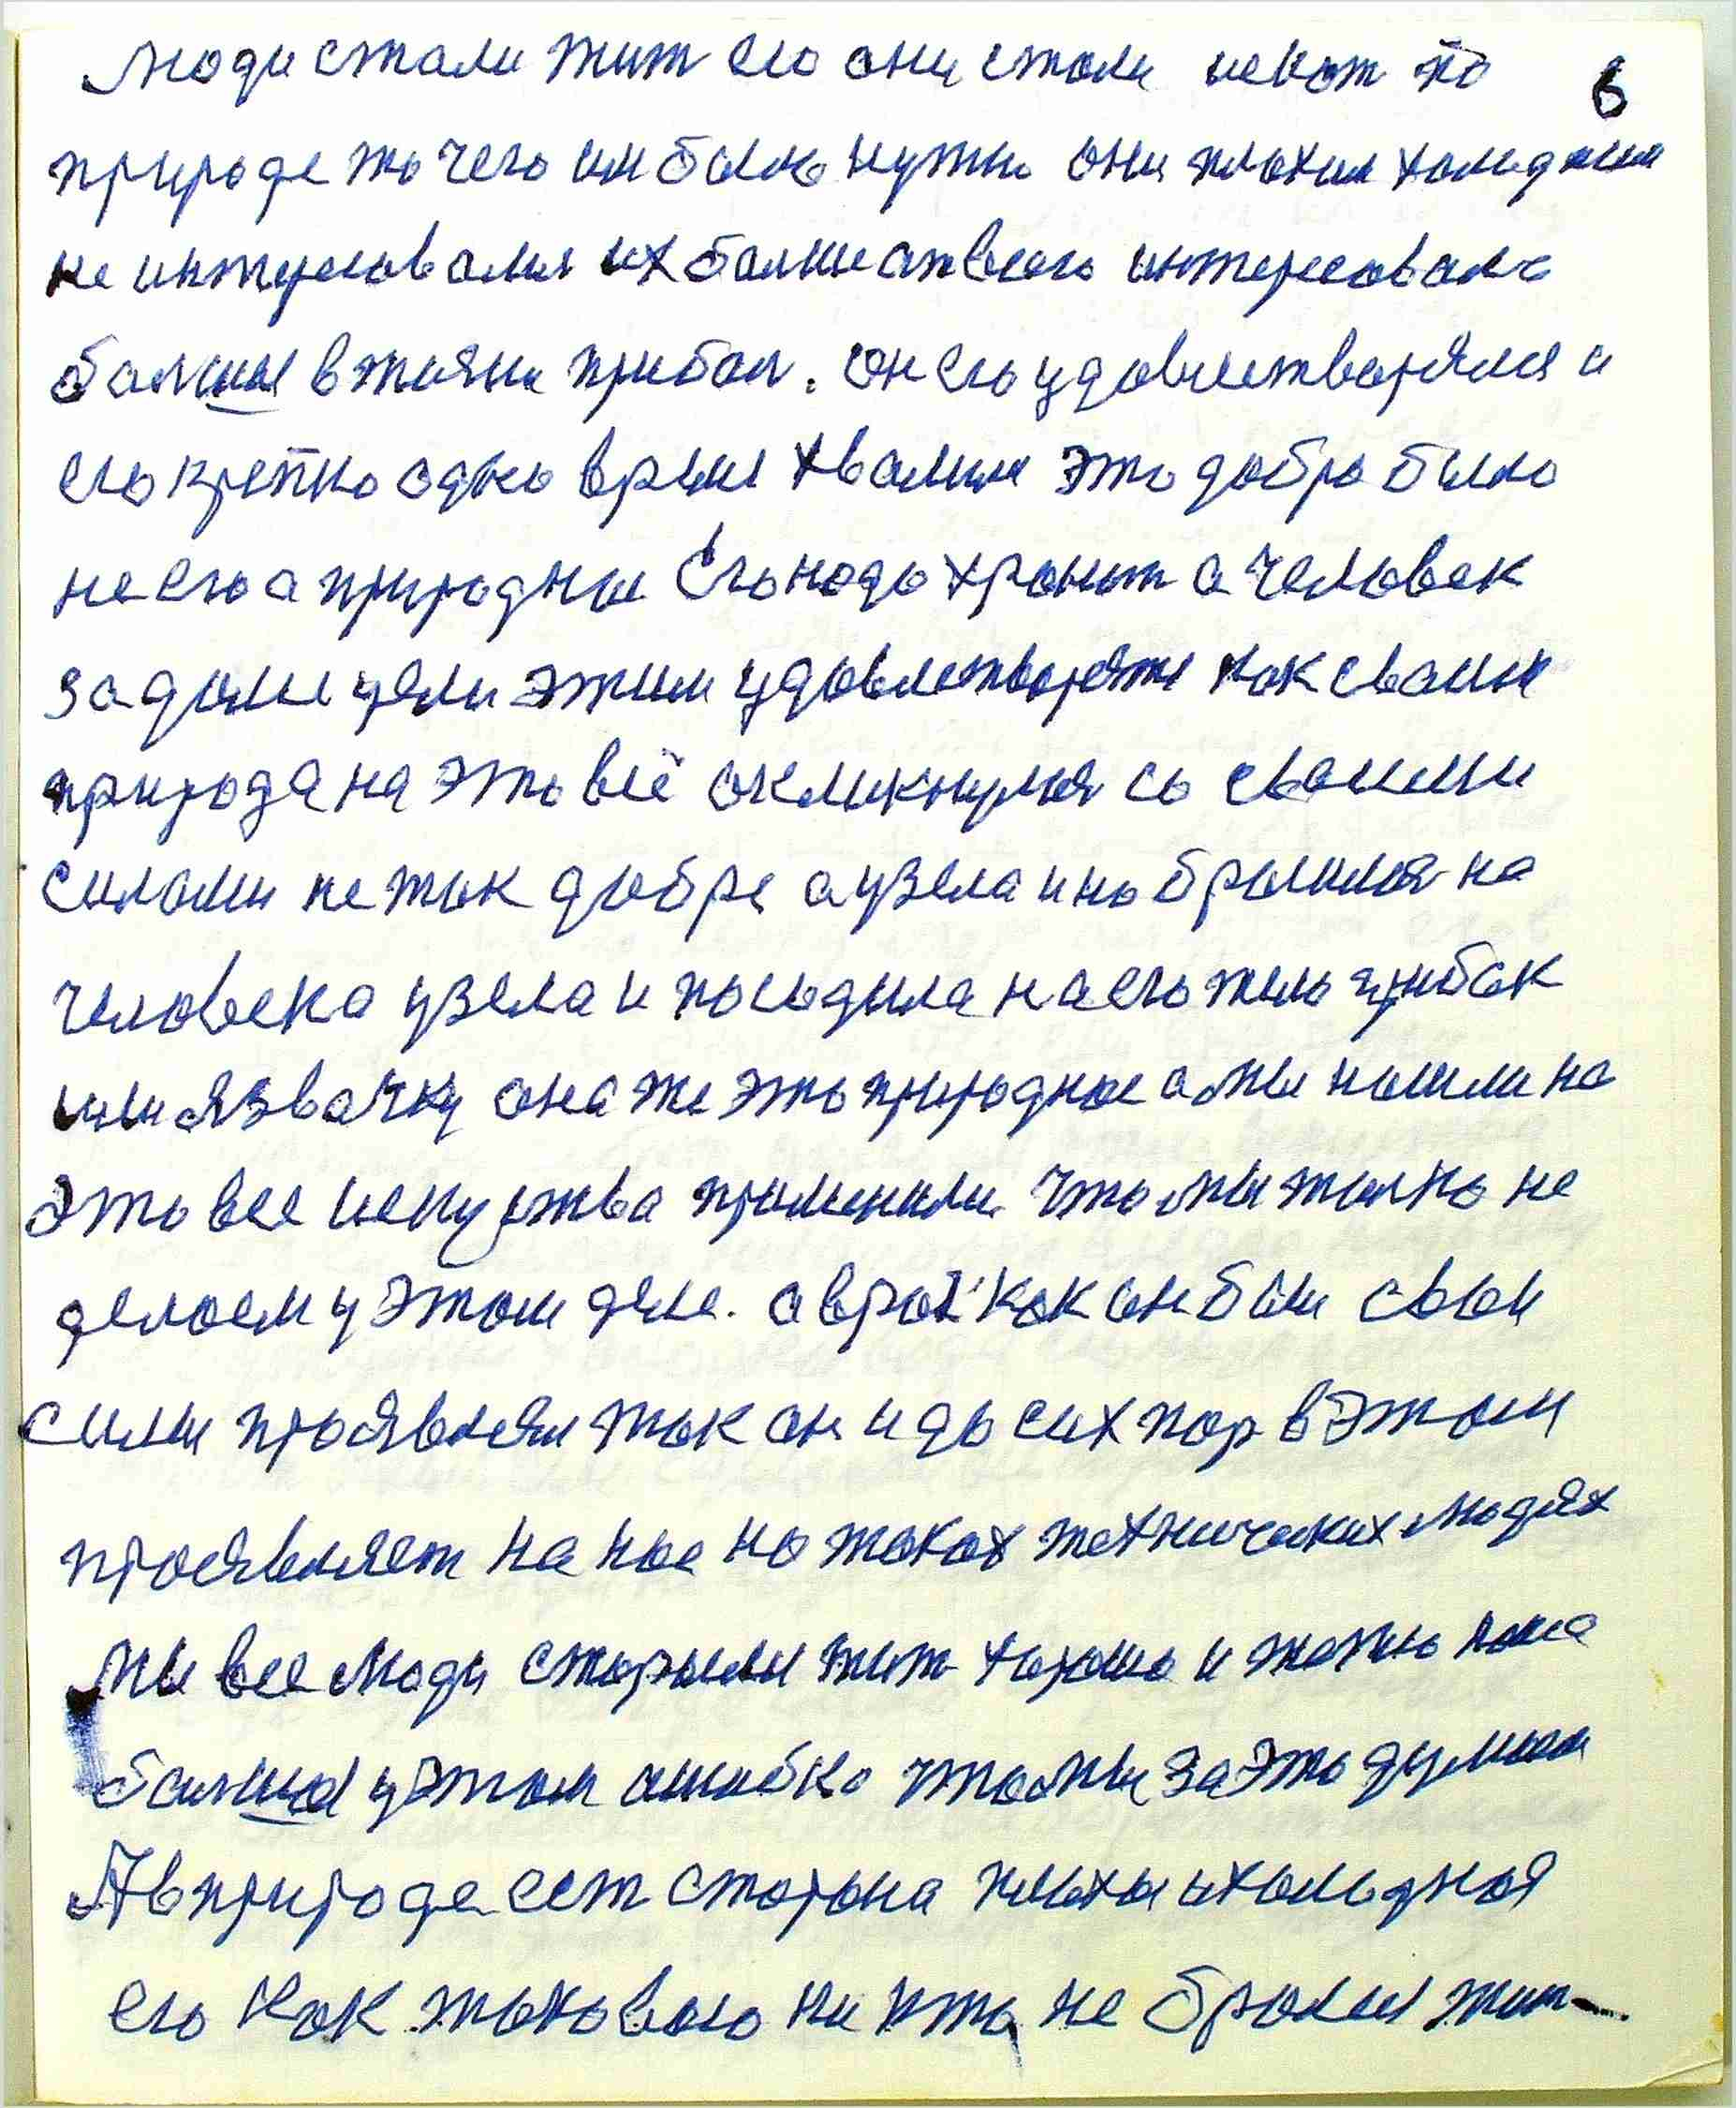 люди стали жит его они стали искат по 6
природе то чего им було нужно они плохим холодним
не интересовался их болше отвсего интересовало
болший в жизни прибол. он его удовлетворялся и
его крепко одно время хвалили это добро било
не его а природные Его надо хранит а человек
за doлгие цели этим удовлетворятте как своим
природа на это всё окликнулся со своими
силами не так добре а узела и на бросился на
человека узела и посадила на его тело грибок
или язвачку она же это природное а мы нашли на
Это все искуства применили. что ми толко не
делаем у этом деле. а враг как он бы свои
сили проявлял так он и до сих пор в этом
проявляет на нас на таких технических людях
Мы все люди старыли жит хорошо и тепло наша
болшая у этом ошибка что мы за это думаем
А в природе ест сторона плохая и холодная
его как таковаго ни кто не бросил жит